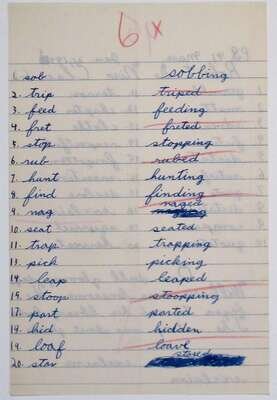 6 x
1. sob sobbing
2. trip triped
3. feed feeding
4. fret freted
5. stop stopping
6. rub rubed
7. hunt hunting
8. find finding
9. nag naged
10. seat seated
11. trap trapping
13. pick picking
14. leap leaped
15. stoop stoopping
17. part parted
18. hid hidden
19. loaf loave
20. star stared